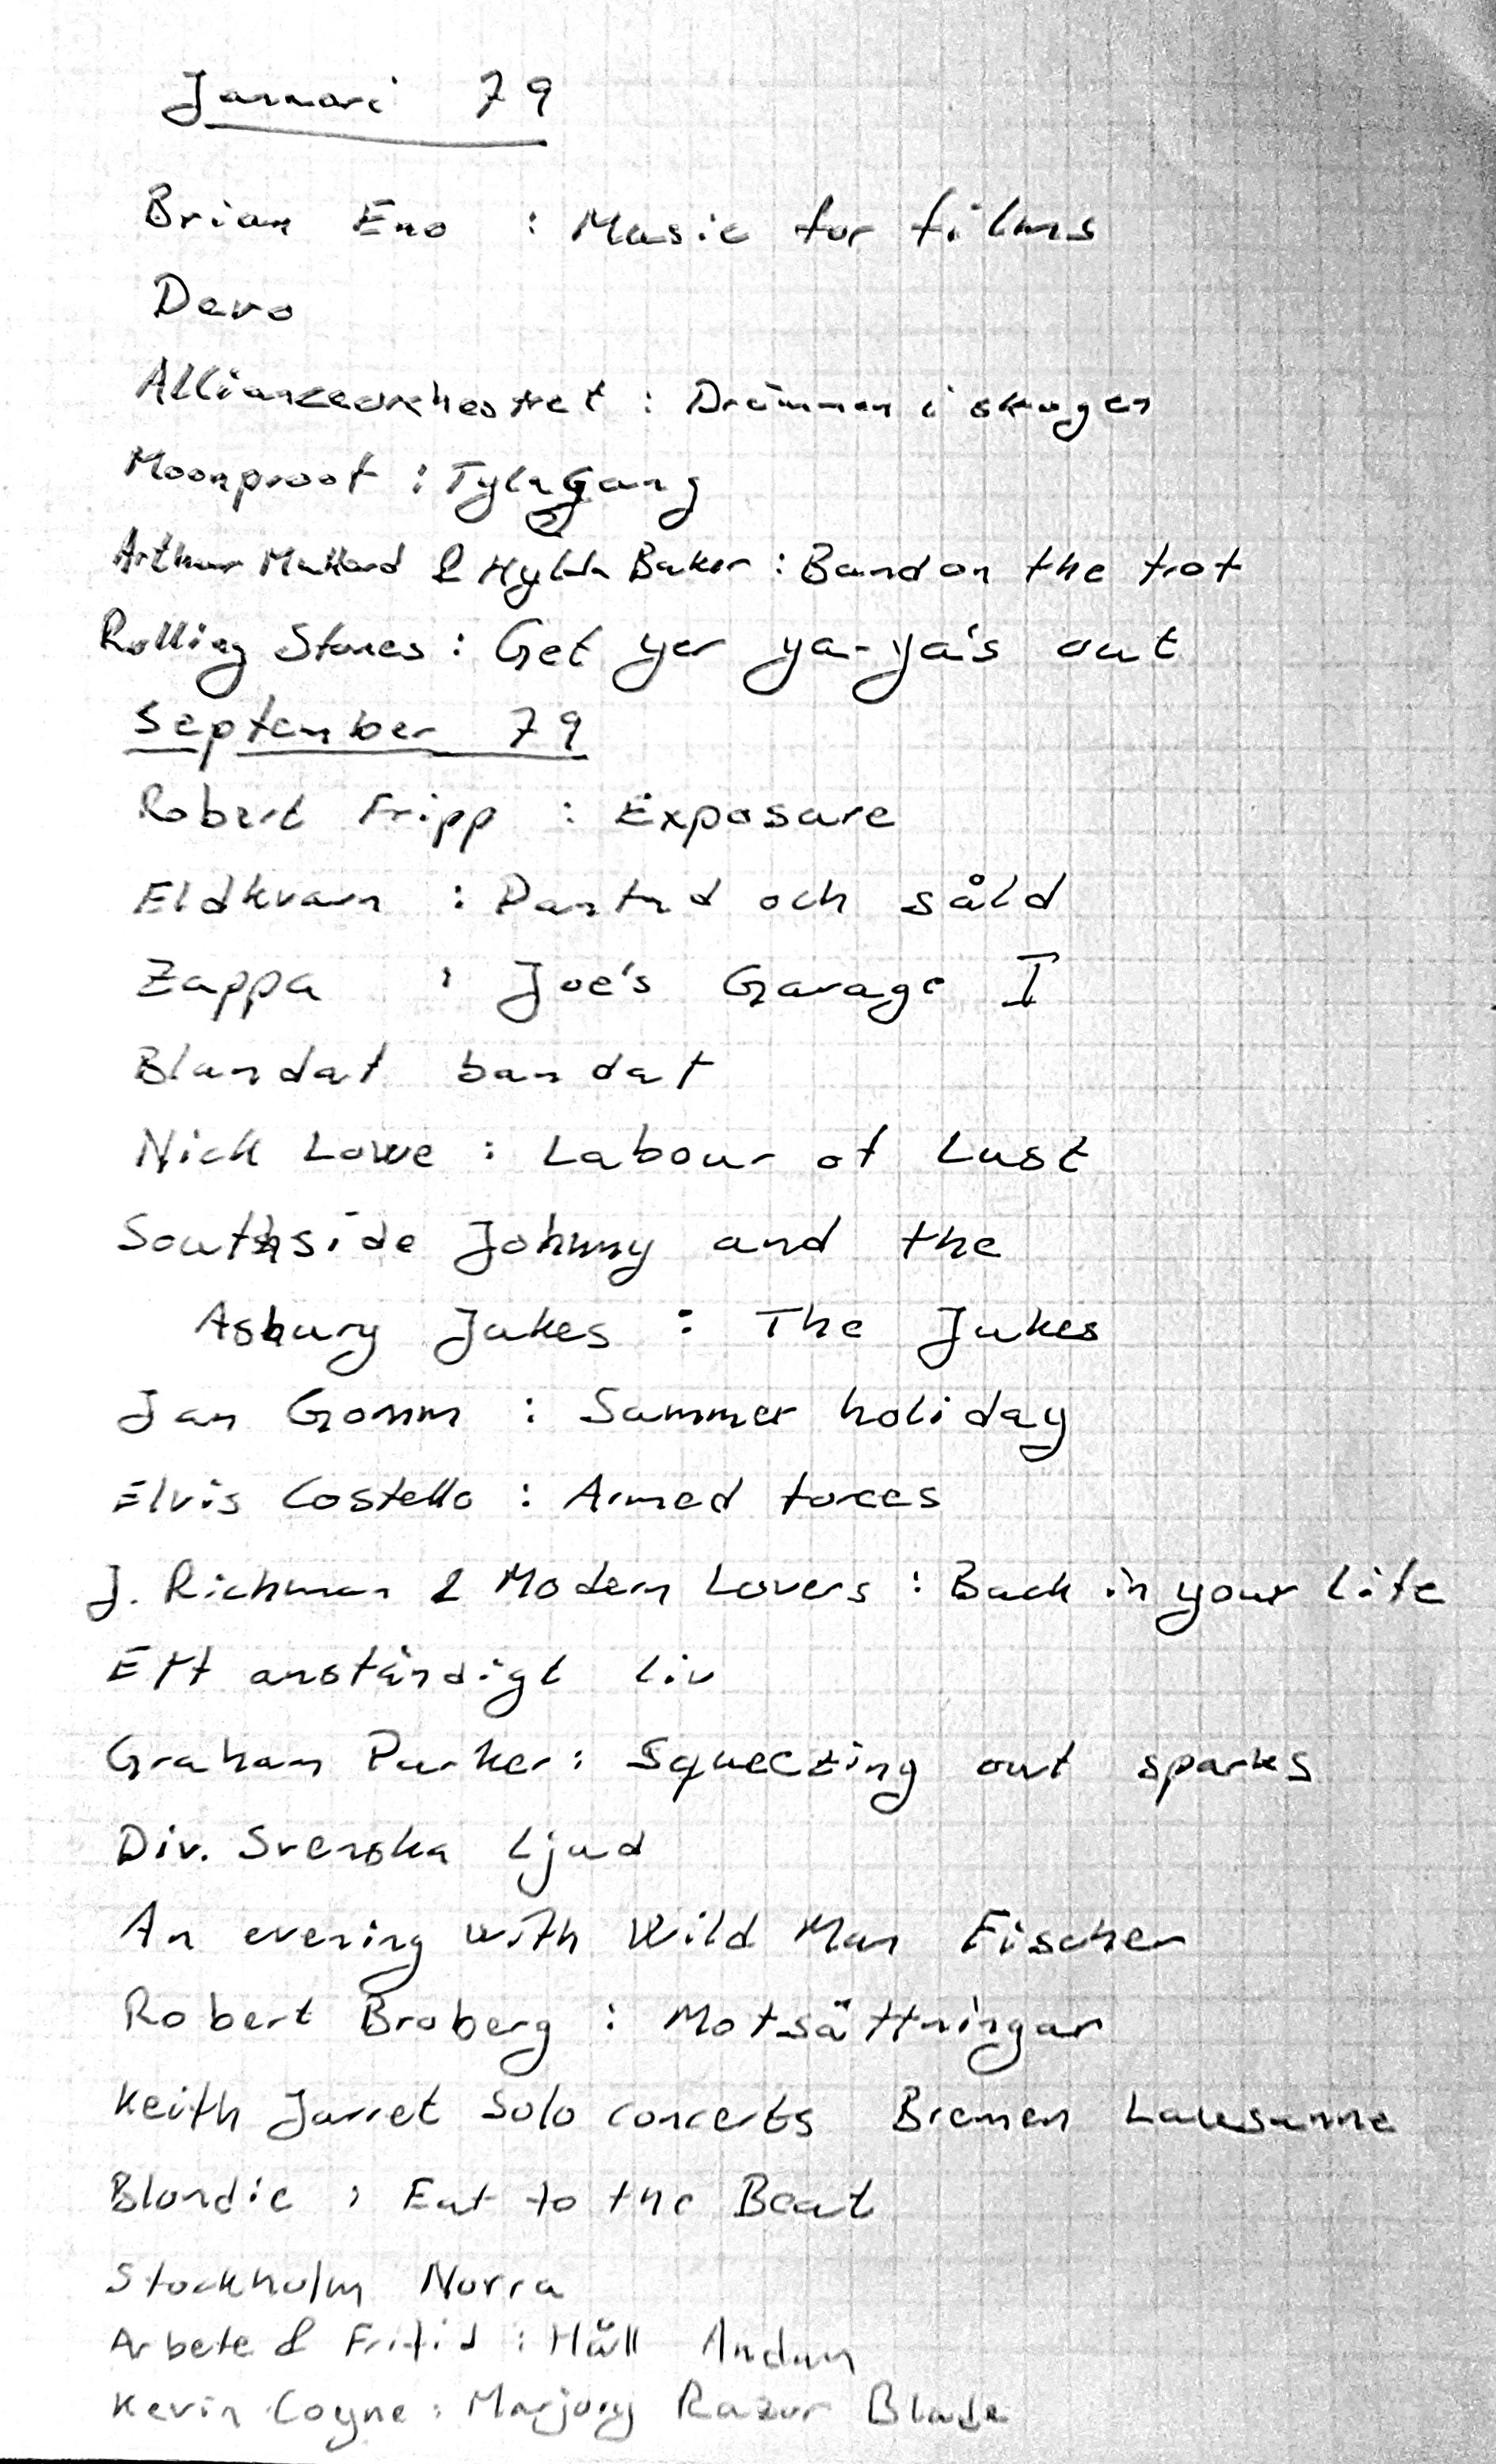 Januari 79
Brian Eno : Music for films
Devo
Allianceorchestret : Drömmen i skogen
Moonproof : Tyla Gang
Arthur Mullard & Hylda Baker : Band on the trot
Rolling Stones : Get yer ya-ya's out
September 79
Robert Fripp : Exposure
Eldkvarn : Pantad och såld
Zappa : Joe's Garage I
Blandat bandat
Nick Lowe : Labour of Lust
Southside Johnny and the
Asbury Jukes : The Jukes
Ian Gomm : Summer holiday
Elvis Costello : Armed forces
J. Richman & Modern Lovers : Back in your life
Ett anständigt liv
Graham Parker : Squeezing out sparks
Div. Svenska ljud
An evening with Wild Man Fischer
Robert Broberg : Motsättningar
Keith Jarret Solo concerts Bremen Lausanne
Blondie : Eat to the Beat
Stockholm Norra
Arbete & Fritid : Håll Andan
Kevin Coyne : Marjory Razor Blade